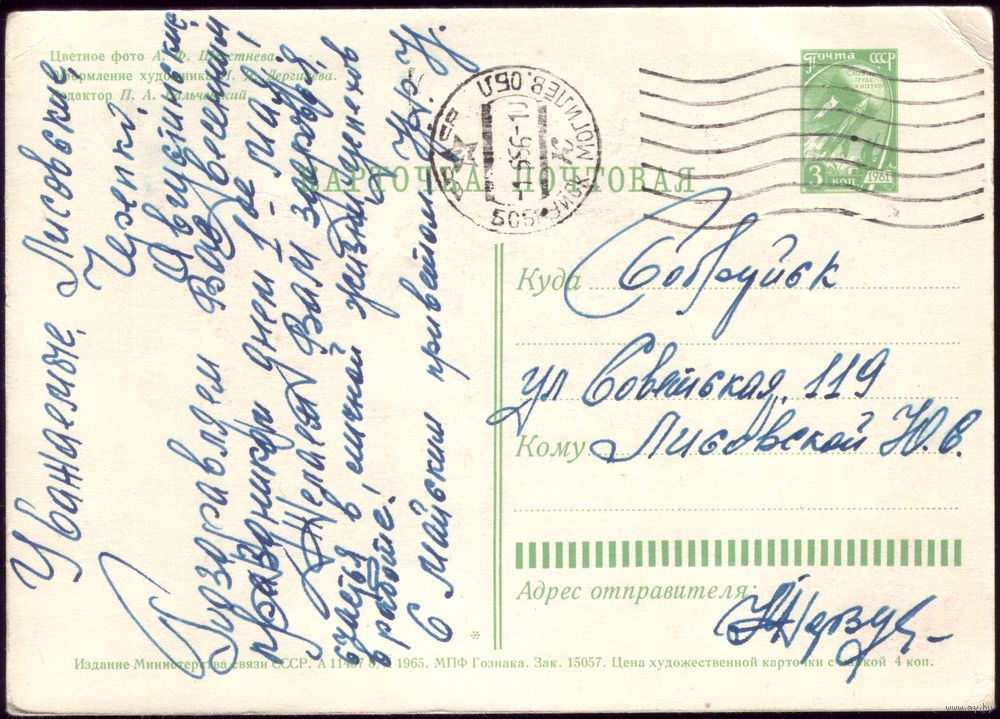 Цветное фото А. Ф. Шерстнева.
Оформление художника П. Дергилева.
Редактор П. А. Кальчевский.
Почта СССР
СЛАВА
ТРУДУ
И НАУКЕ
3 коп
1961
МОГИЛЕВ. ОБЛ
КАРТОЧКА ПОЧТОВАЯ
Уважаемые Лисовские
Поздравляем Вас с весенним
праздником днем 1-ое мая!
Желаем Вам здоровья,
счастья в личной жизни, успехов
в работе!
С майским приветом
Куда Бобруйск
ул Советская, 119
Кому Лисовской Ю.В.
Адрес отправителя:
Издание Министерства связи СССР. 1965. МПФ Гознака. Зак. 15057. Цена художественной карточки с маркой 4 коп.
www.ay.by